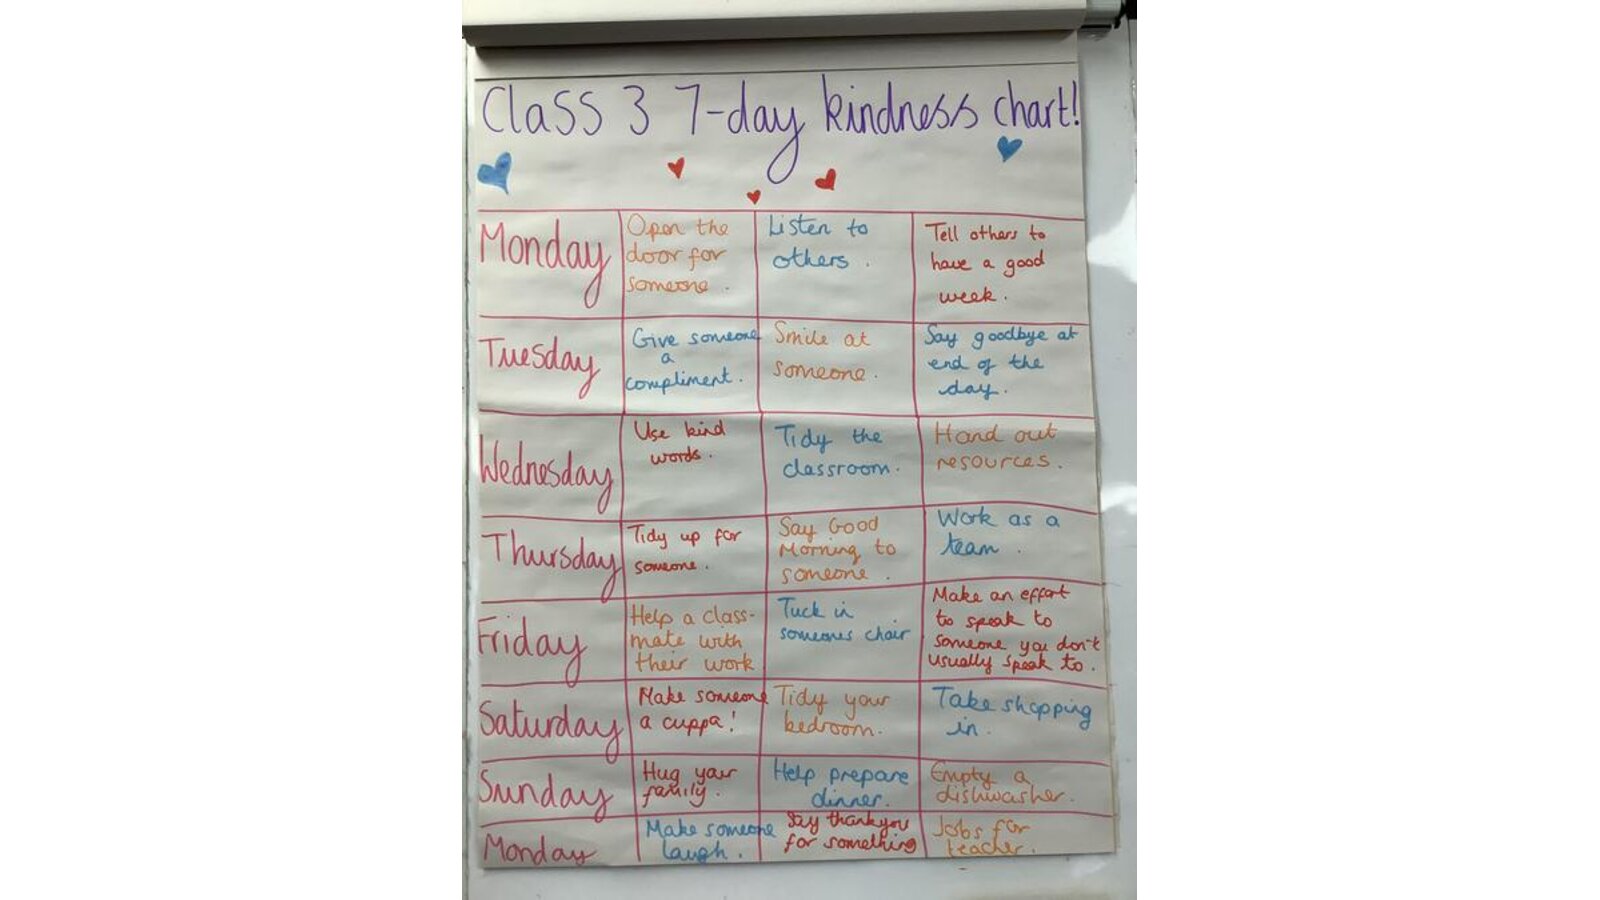 Class 3 7-day kindness chart!
Monday
Open the
door for
someone.
Listen to
others.
Tell others to
have a good
week.
Tuesday
Give someone
a
compliment.
Smile at
someone.
Say goodbye at
end of the
day.
Wednesday
Use kind
words.
Tidy the
classroom.
Hand out
resources.
Thursday
Tidy up for
someone.
Say Good
Morning to
someone.
Work as a
team.
Friday
Help a class-
mate with
their work
Tuck in
someones chair
Make an effort
to speak to
someone you don't
usually speak to.
Saturday
Make someone
a cuppa!
Tidy your
bedroom.
Take shopping
in.
Sunday
Hug your
family.
Help prepare
dinner.
Empty a
dishwasher.
Monday
Make someone
laugh.
Say thankyou
for something
Jobs for
teacher.